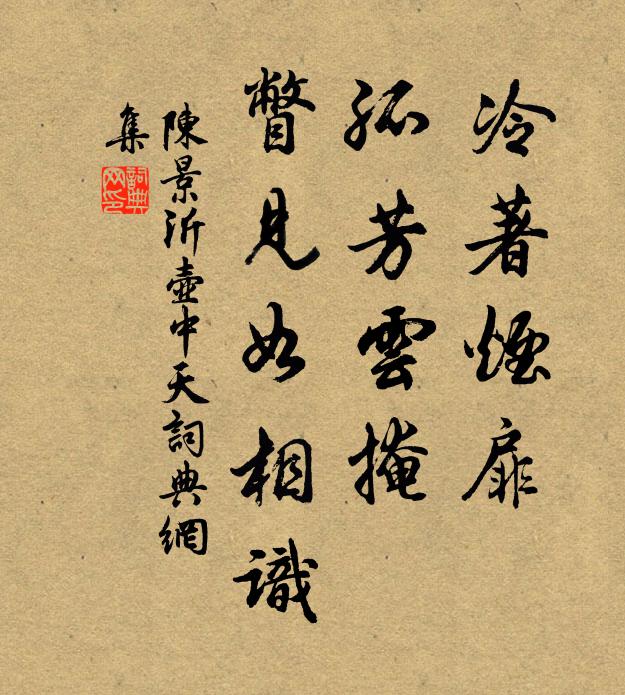 冷著煙扉
孤芳雲掩
瞥見如相識
陳景沂壺中天詞典網
集
詞典
网印